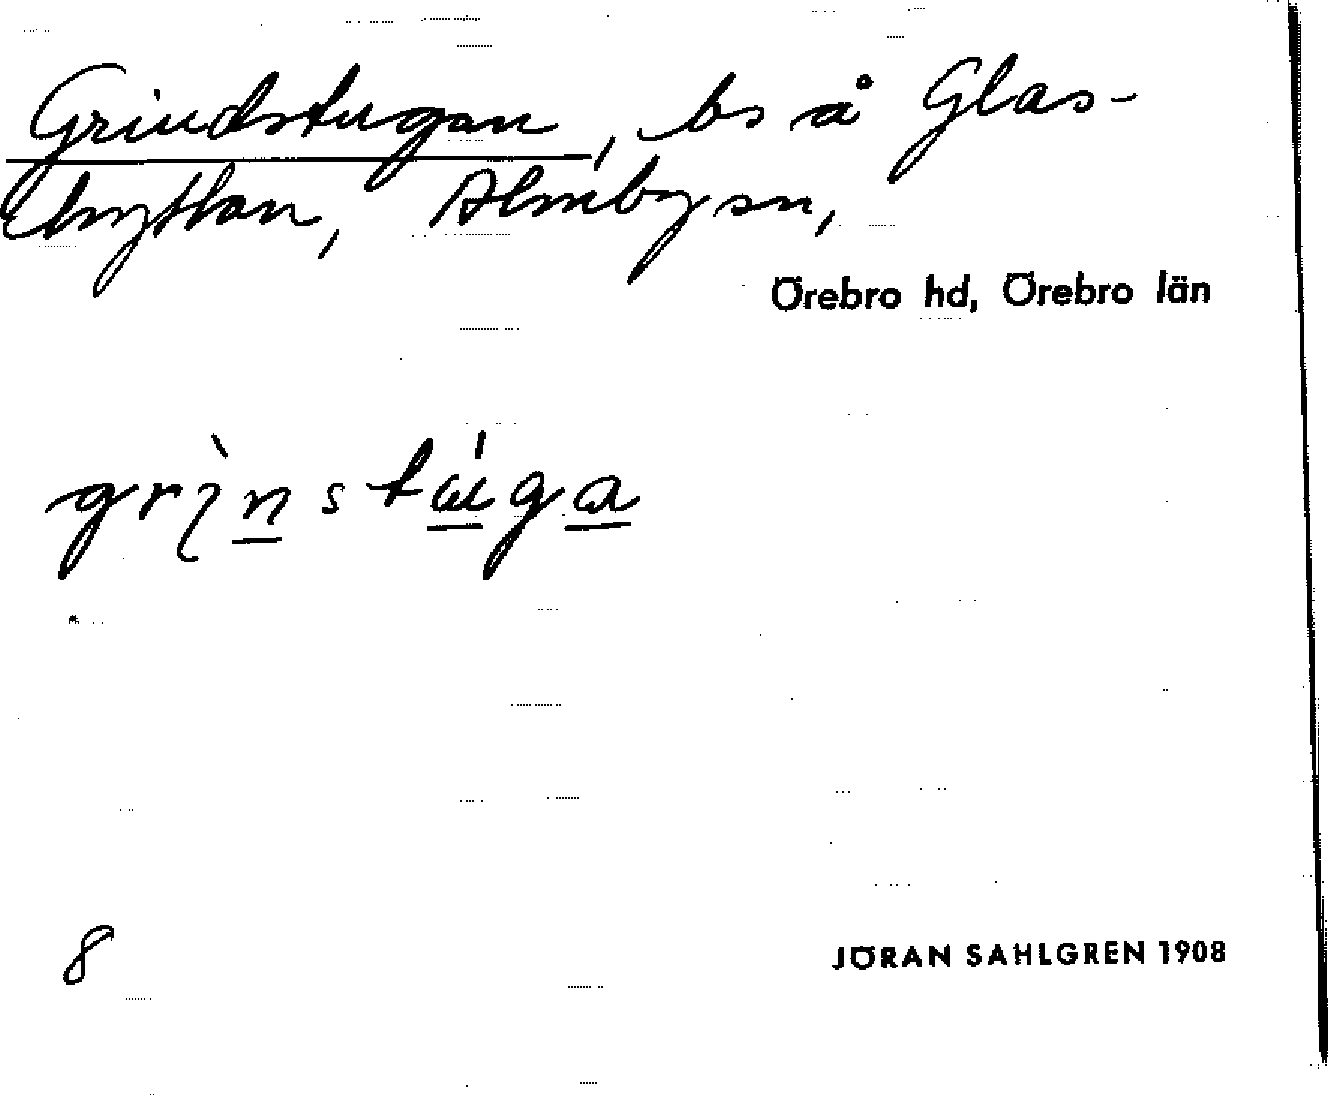 Grindstugan, bs å Glas-
hyttan, Almby sn,
Örebro hd, Örebro län
grìnstúga
8
JÖRAN SAHLGREN 1908